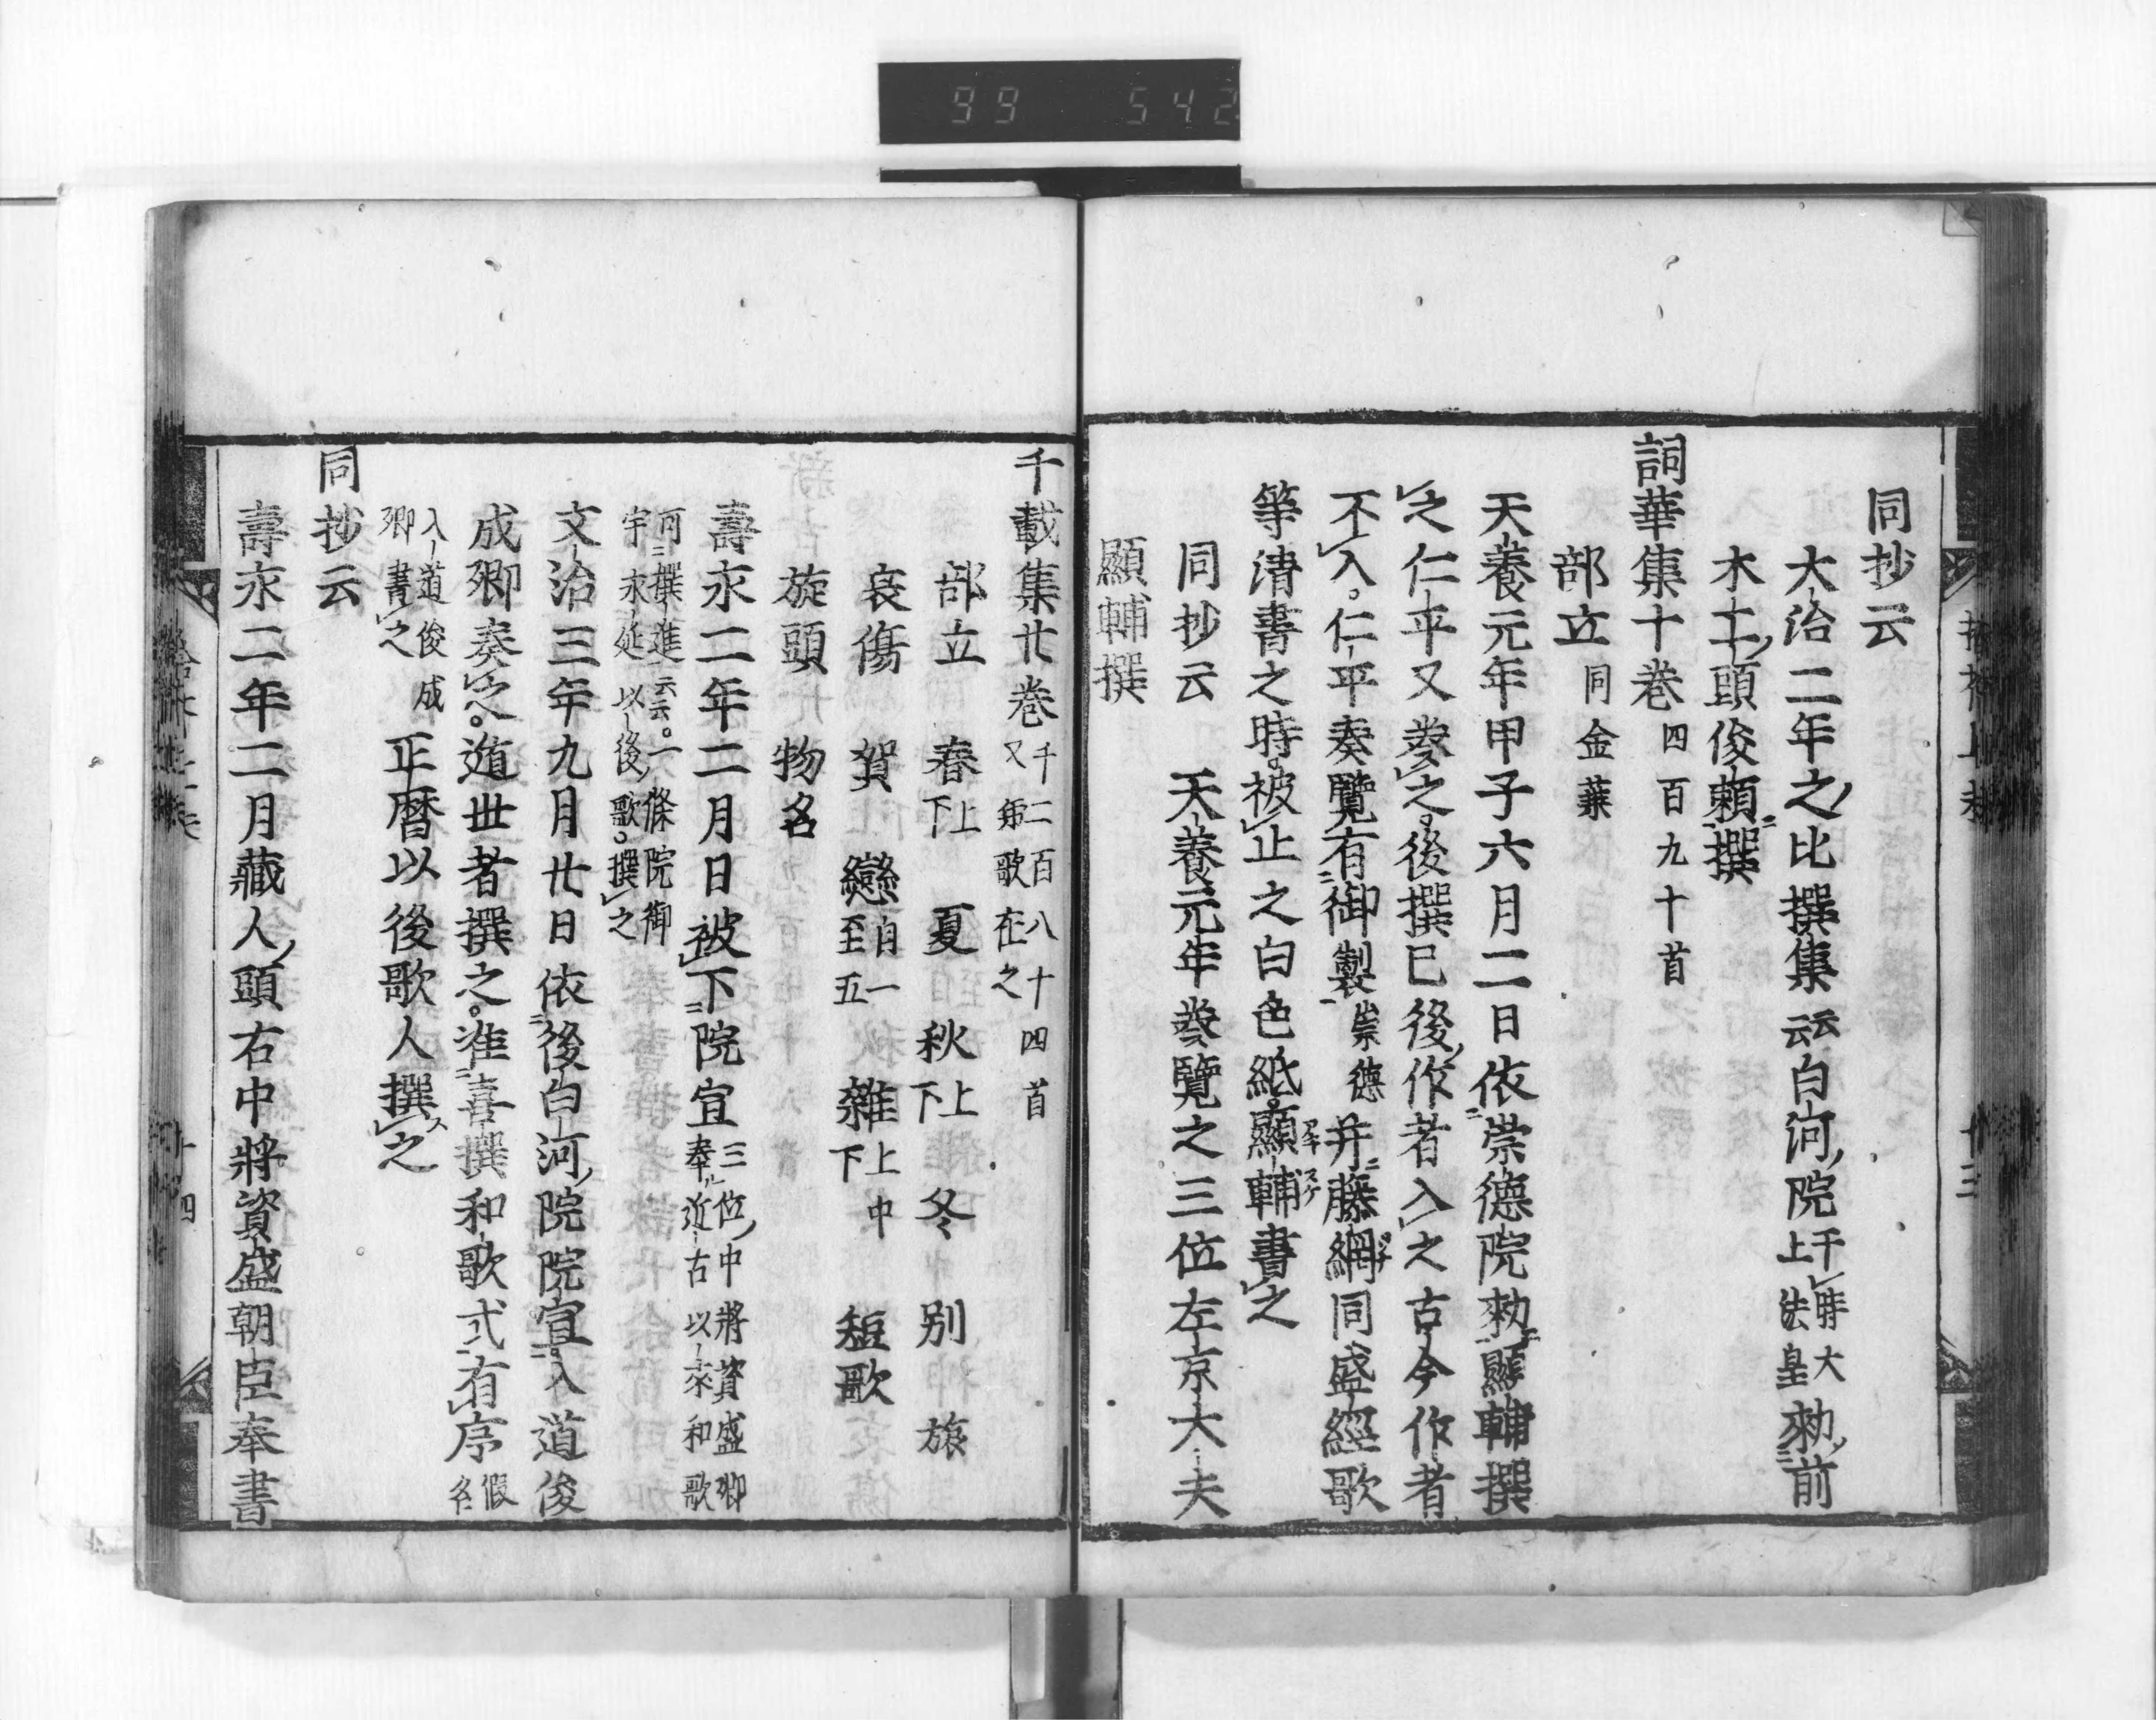 99 542
同抄云
大治二年之比撰集云云白河院于時大上法皇勅前
木工頭俊頼撰
詞華集十巻四百九十首
部立同金葉
天養元年甲子六月二日依崇徳院勅顕輔撰
之仁平又奏之後撰已後作者入之古今作者
不入。仁平奏覽有御製崇徳并藤網同盛經歌
等清書之時被止之白色紙。顯輔書之
同抄云 天養元年奏覽之三位左京大夫
顯輔撰
千載集廿巻千二百八十四首又短歌在之
部立 春上下 夏 秋上下 冬 别 旅
哀傷 賀 戀自一至五 雜上中下 短歌
旋頭 物名
壽永二年二月日被下院宣三位中將資盛卿奉近古以来和歌
可撰進云云。一條院御宇永延以後歌。撰之
文治三年九月廿日依後白河院院宣入道俊
成卿奏之。遁世者撰之。准喜撰和歌式有序假名
入道俊成卿書之 正暦以後歌人撰之
同抄云
壽永二年二月藏人頭右中將資盛朝臣奉書
十三
十四